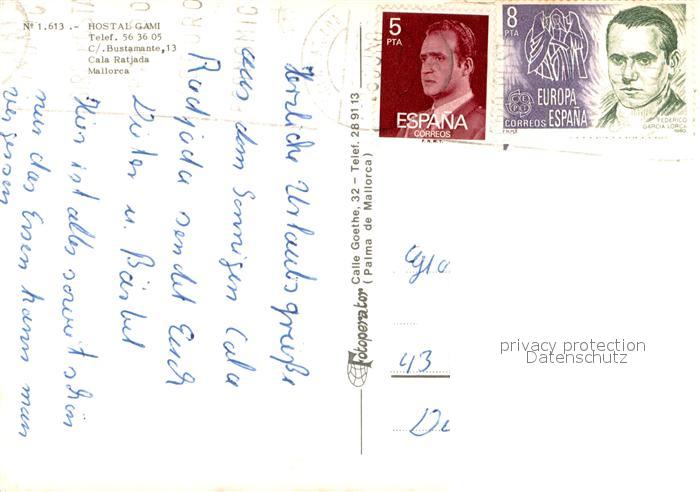 Nº 1.613 .- HOSTAL GAMI
Telef. 56 36 05
C/.Bustamante,13
Cala Ratjada
Mallorca
Herzliche Urlaubsgrüße
aus dem Sonnigen Cala
Radjada sendet Euch
Dieter u. Bärbel
Hier ist alles soweit schön
nur das Essen kann man
vergessen
Fotoperator Calle Goethe, 32 – Telef. 28 91 13
( Palma de Mallorca)
5
PTA
ESPAÑA
CORREOS
F.N.M.T.
8
PTA
EUROPA
CORREOS ESPAÑA
FEDERICO
GARCIA LORCA
1980
43
privacy protection
Datenschutz